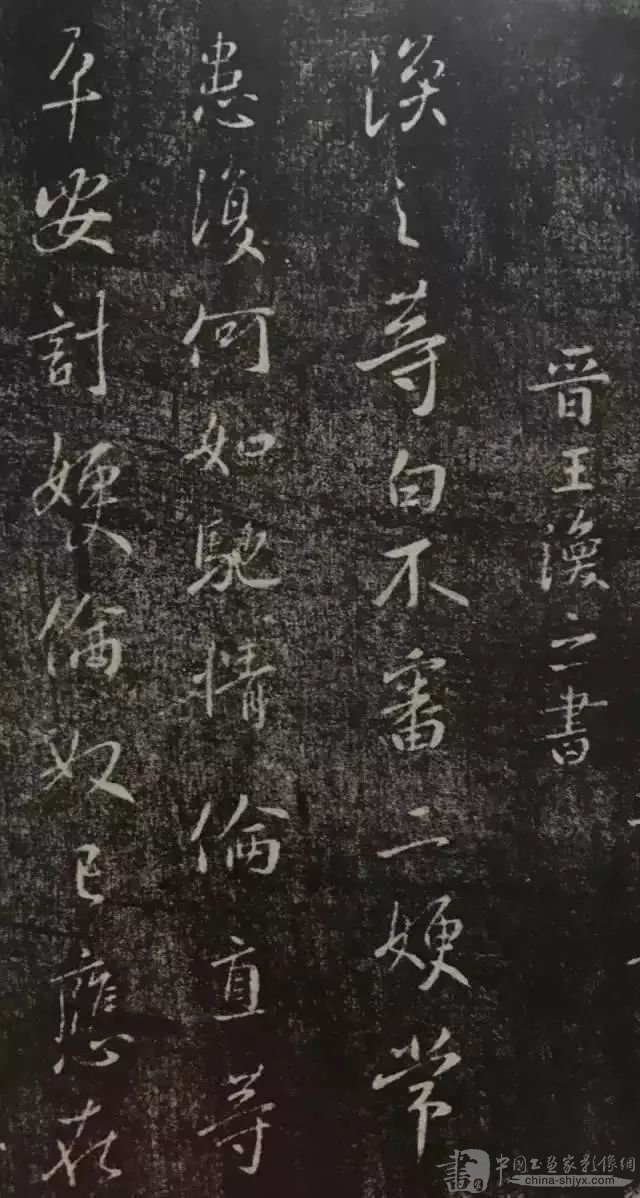 晋王渙之書
渙之等白不審二嫂常
患復何如馳情倫直等
平安計嫂倫奴已應在
中国书画家影像網
china-shjyx.com